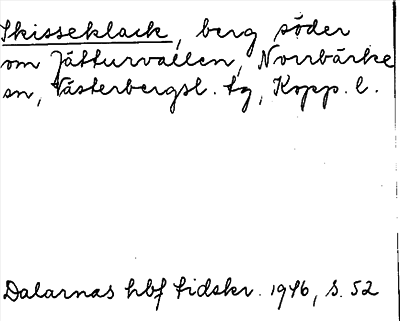 Skisseklack, berg söder
om Jätturvallen, Norrbärke
sn, Västerbergsl. tg, Kopp. l.
Dalarnas hbf tidskr. 1946, s. 52